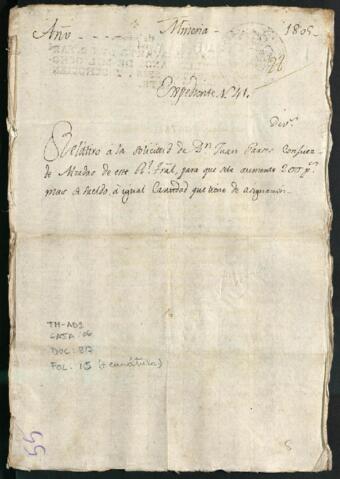 Año Mineria 1805
22
Expediente N. 41.
Relativo a la solicitud de Dn. Juan
de Minas de este Rl. Tral, para que se le aumenten 200 ps.
mas de sueldo, o igual Cantidad que tiene de asignacion.
TM-AD1
CAJA: 06
DOC: 817
FOL: 15 (+ carátula)
55